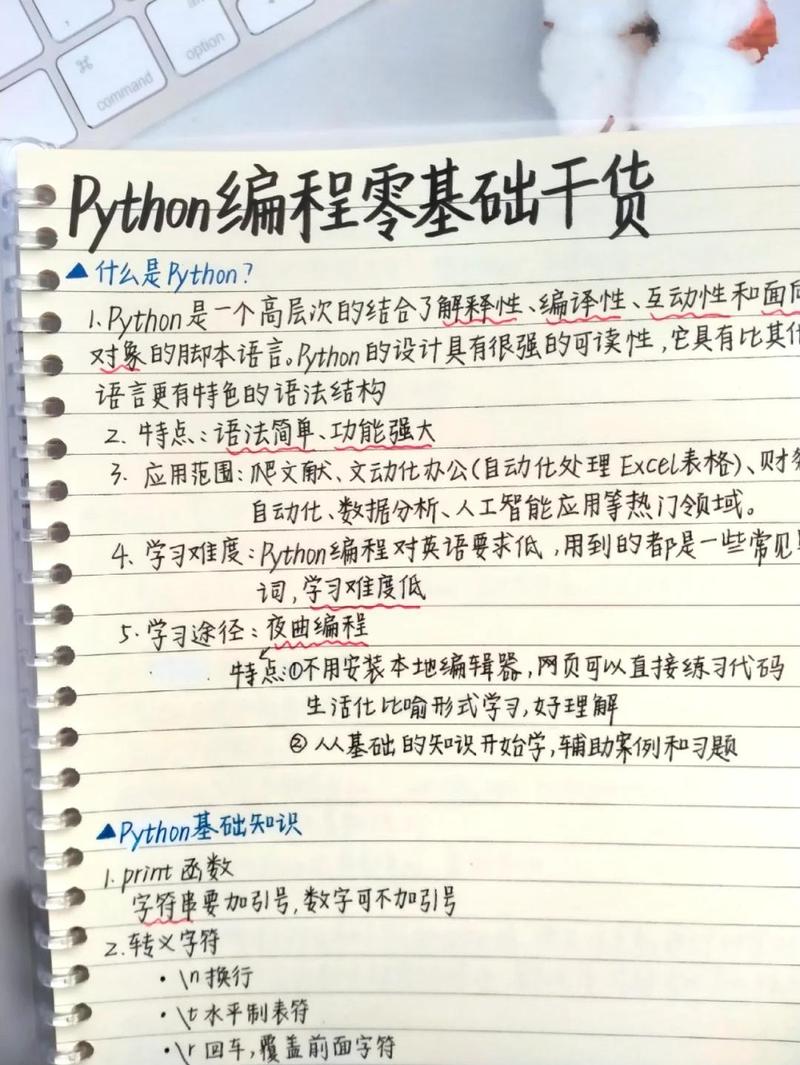 ⌘
command
option
Python编程零基础干货
▲什么是Python?
1.Python是一个高层次的结合了解释性、编译性、互动性和面向
对象的脚本语言。Python的设计具有很强的可读性,它具有比其他
语言更有特色的语法结构
2. 特点:语法简单、功能强大
3. 应用范围:爬文献、文动化办公(自动化处理 Excel表格)、财务
自动化、数据分析、人工智能应用等热门领域。
4. 学习难度:Python编程对英语要求低,用到的都是一些常见
词,学习难度低
5. 学习途径:夜曲编程
特点:①不用安装本地编辑器,网页可以直接练习代码
生活化比喻形式学习,好理解
② 从基础的知识开始学,辅助案例和习题
▲Python基础知识
1.print 函数
字符串要加引号,数字可不加引号
2.转义字符
·\n 换行
·\t 水平制表符
·\r 回车,覆盖前面字符